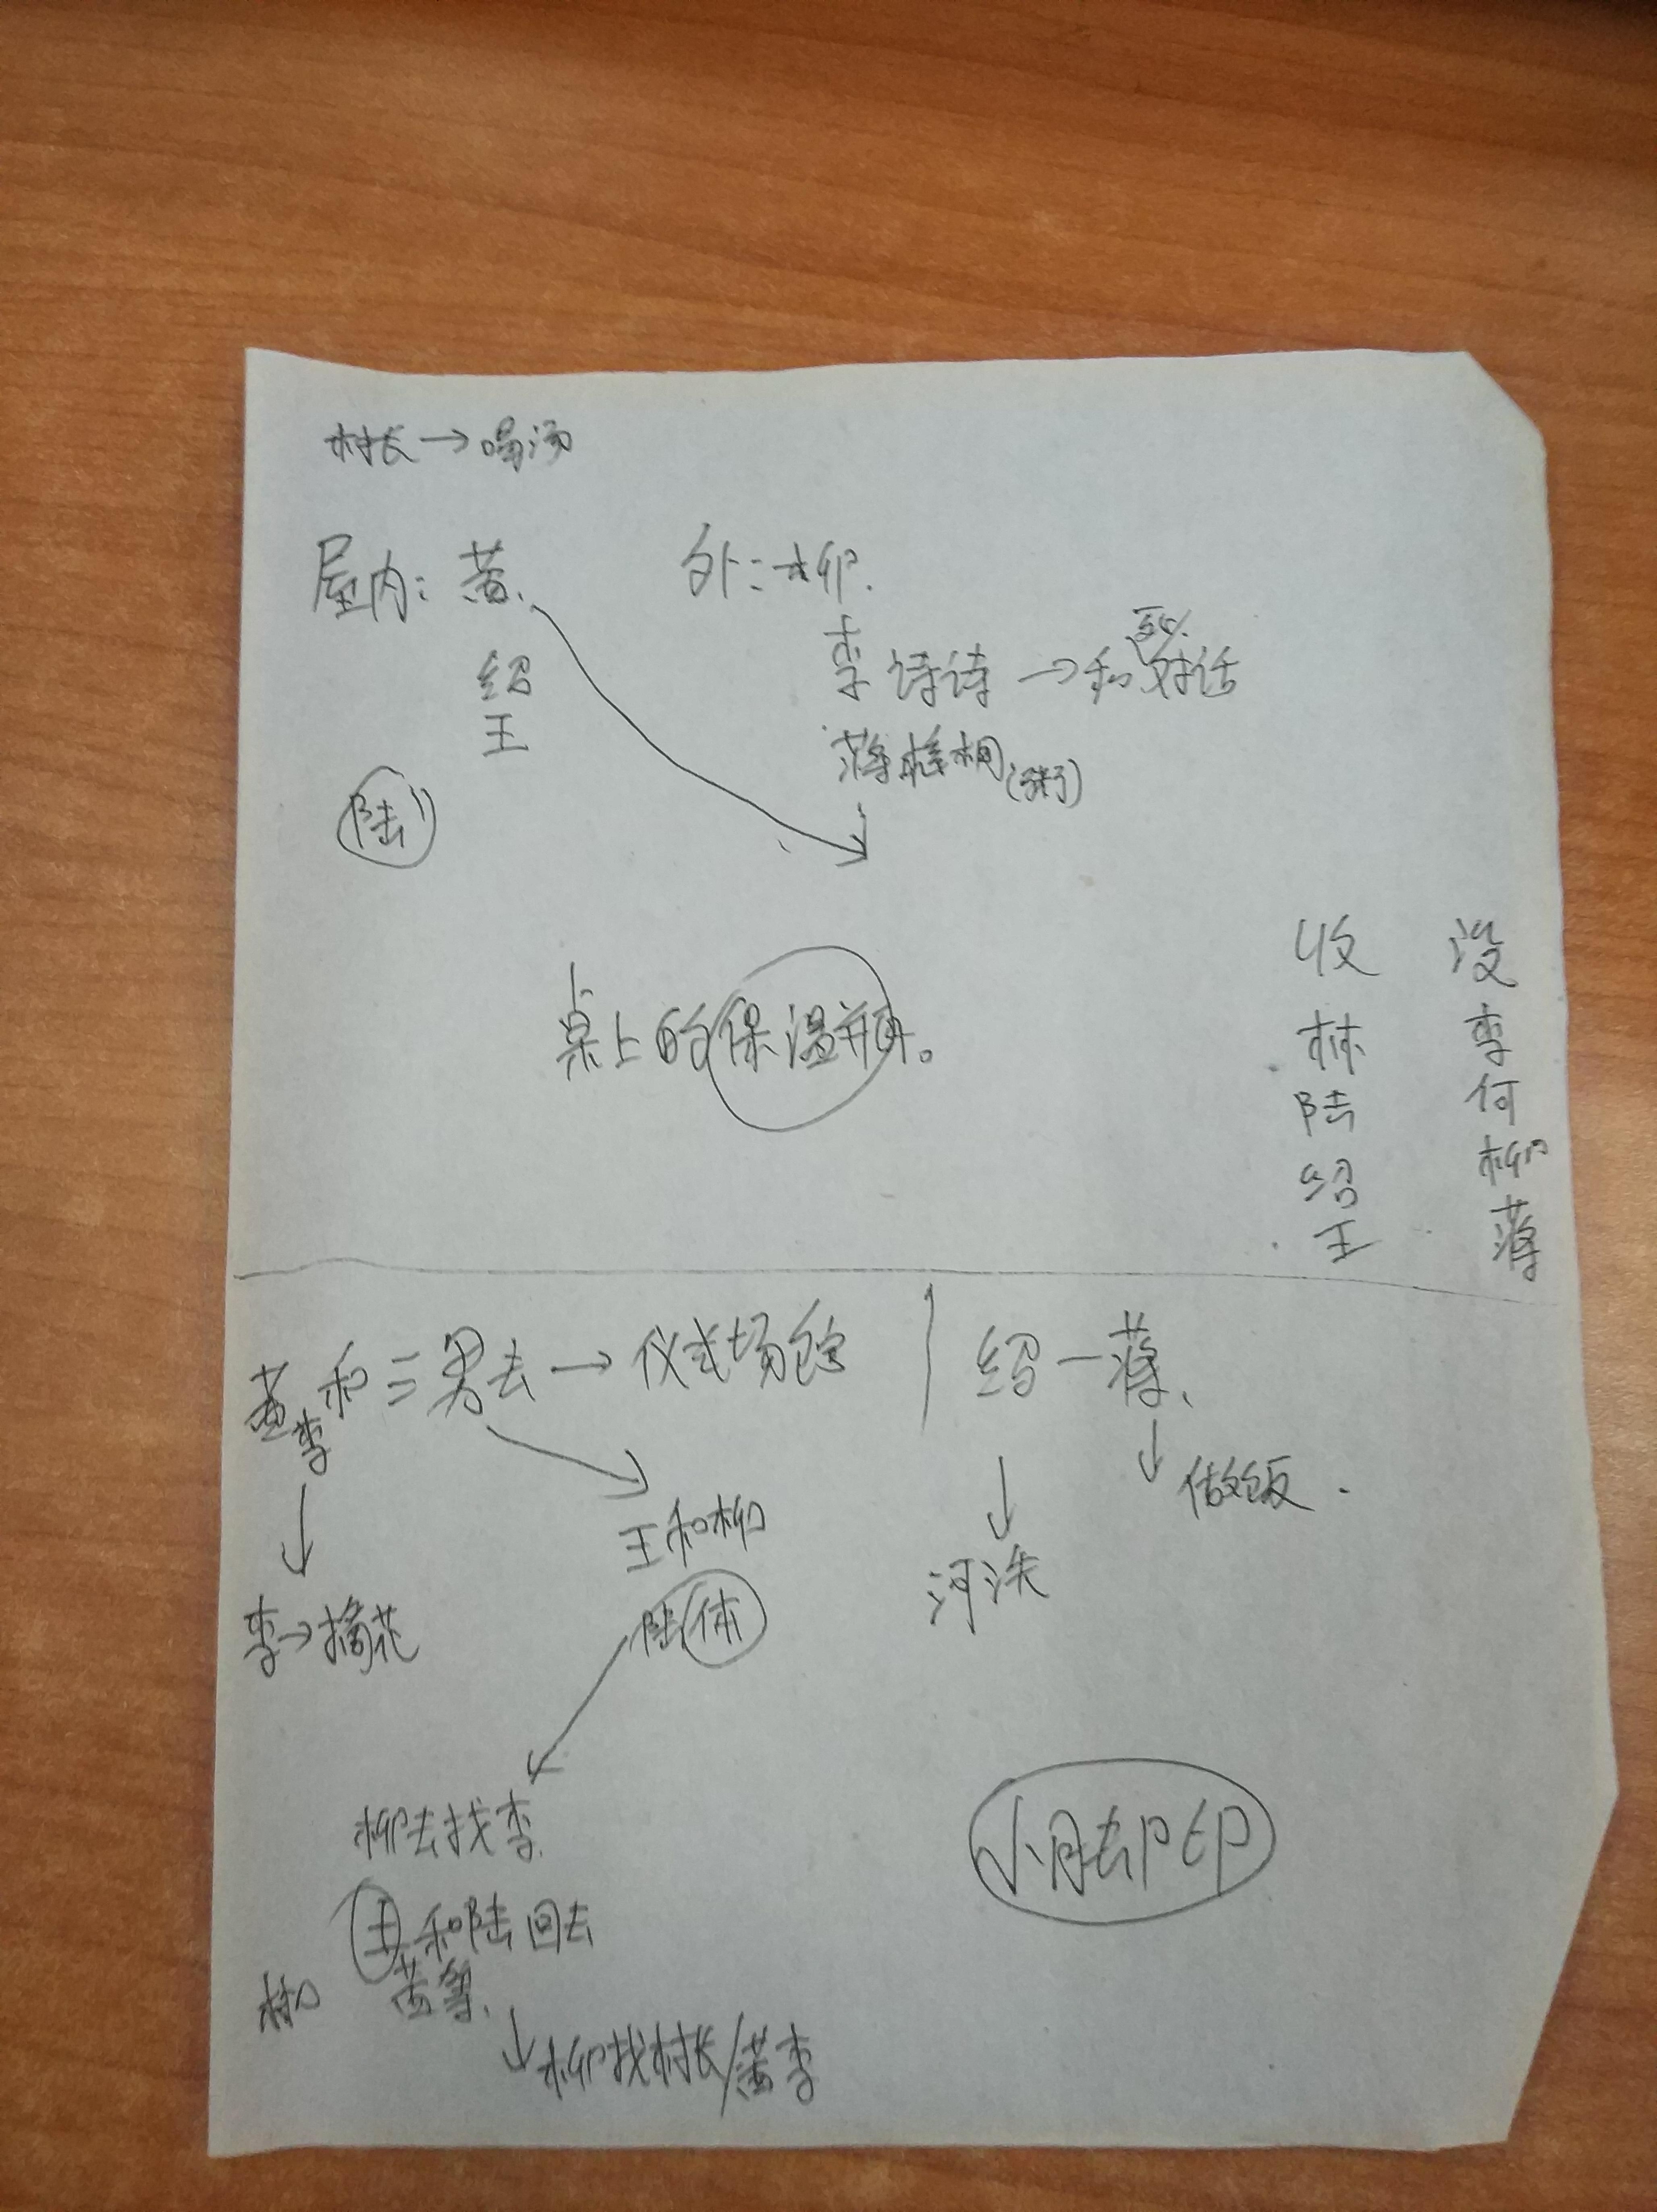 村长→喝汤
屋内：黄、 外：柳.
绍 李诗诗→和对话
王
蒋梧桐(粥)
陆
收 没
桌上的保温瓶。
林 李
陆 何
绍 柳
王 蒋
黄李和三男去→仪式场 绍—蒋、
↓ ↓做饭.
王和柳 河
李→摘花 陆 林
柳去找李
小月去
王和陆回去
柳 黄等、
↓柳找村长/黄李